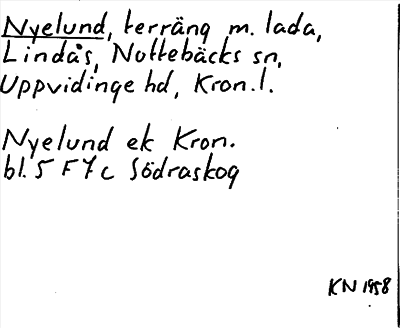 Nyelund, terräng m. lada,
Lindås, Nottebäcks sn,
Uppvidinge hd, Kron.l.
Nyelund ek Kron.
bl. 5 F 7 c Södraskog
KN 1958